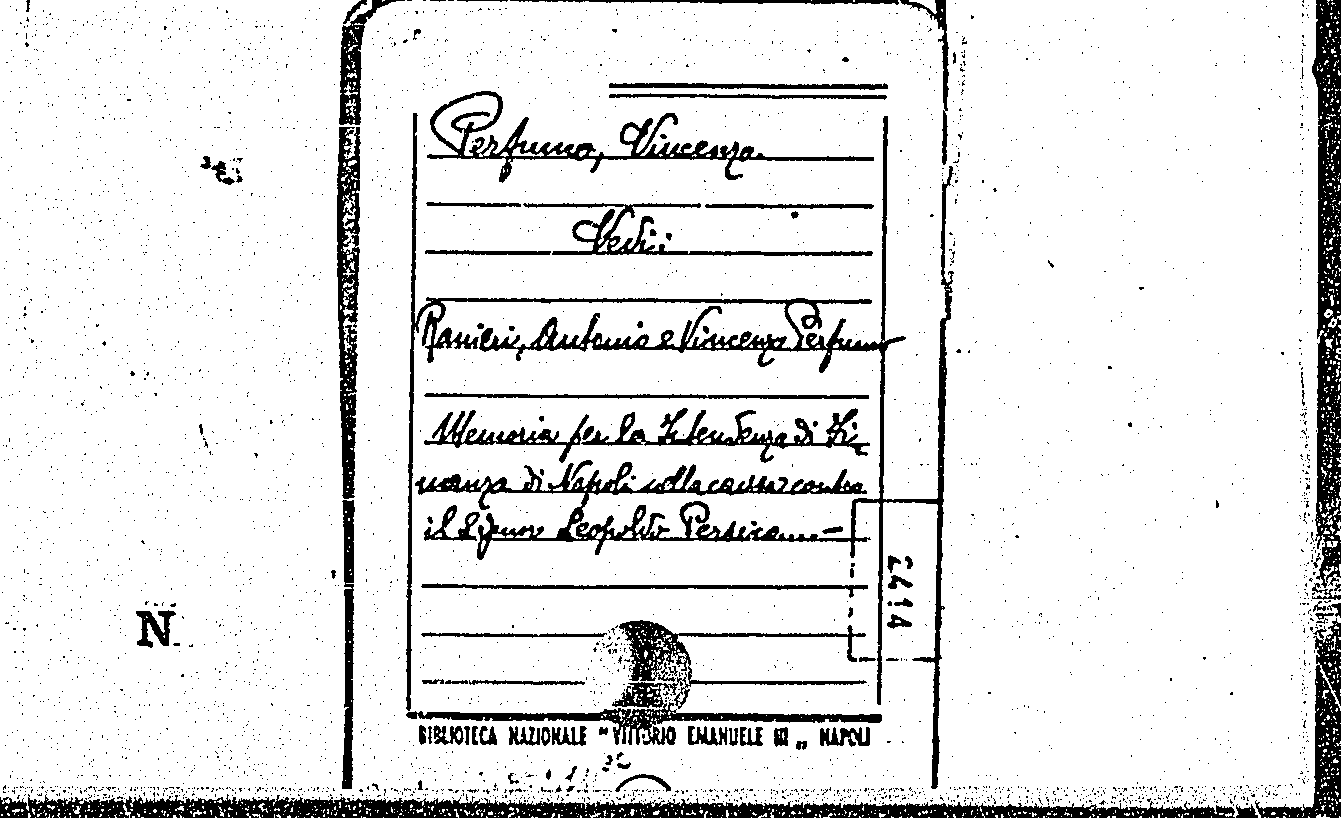 Perfumo, Vincenzo.
Vedi:
Ranieri, Antonio e Vincenzo Perfumo
Memoria per la Intendenza di Fi=
nanza di Napoli sulla causa contro
il Signor Leopoldo Persico....–
2414
N.
BIBLIOTECA NAZIONALE "VITTORIO EMANUELE III„ NAPOLI